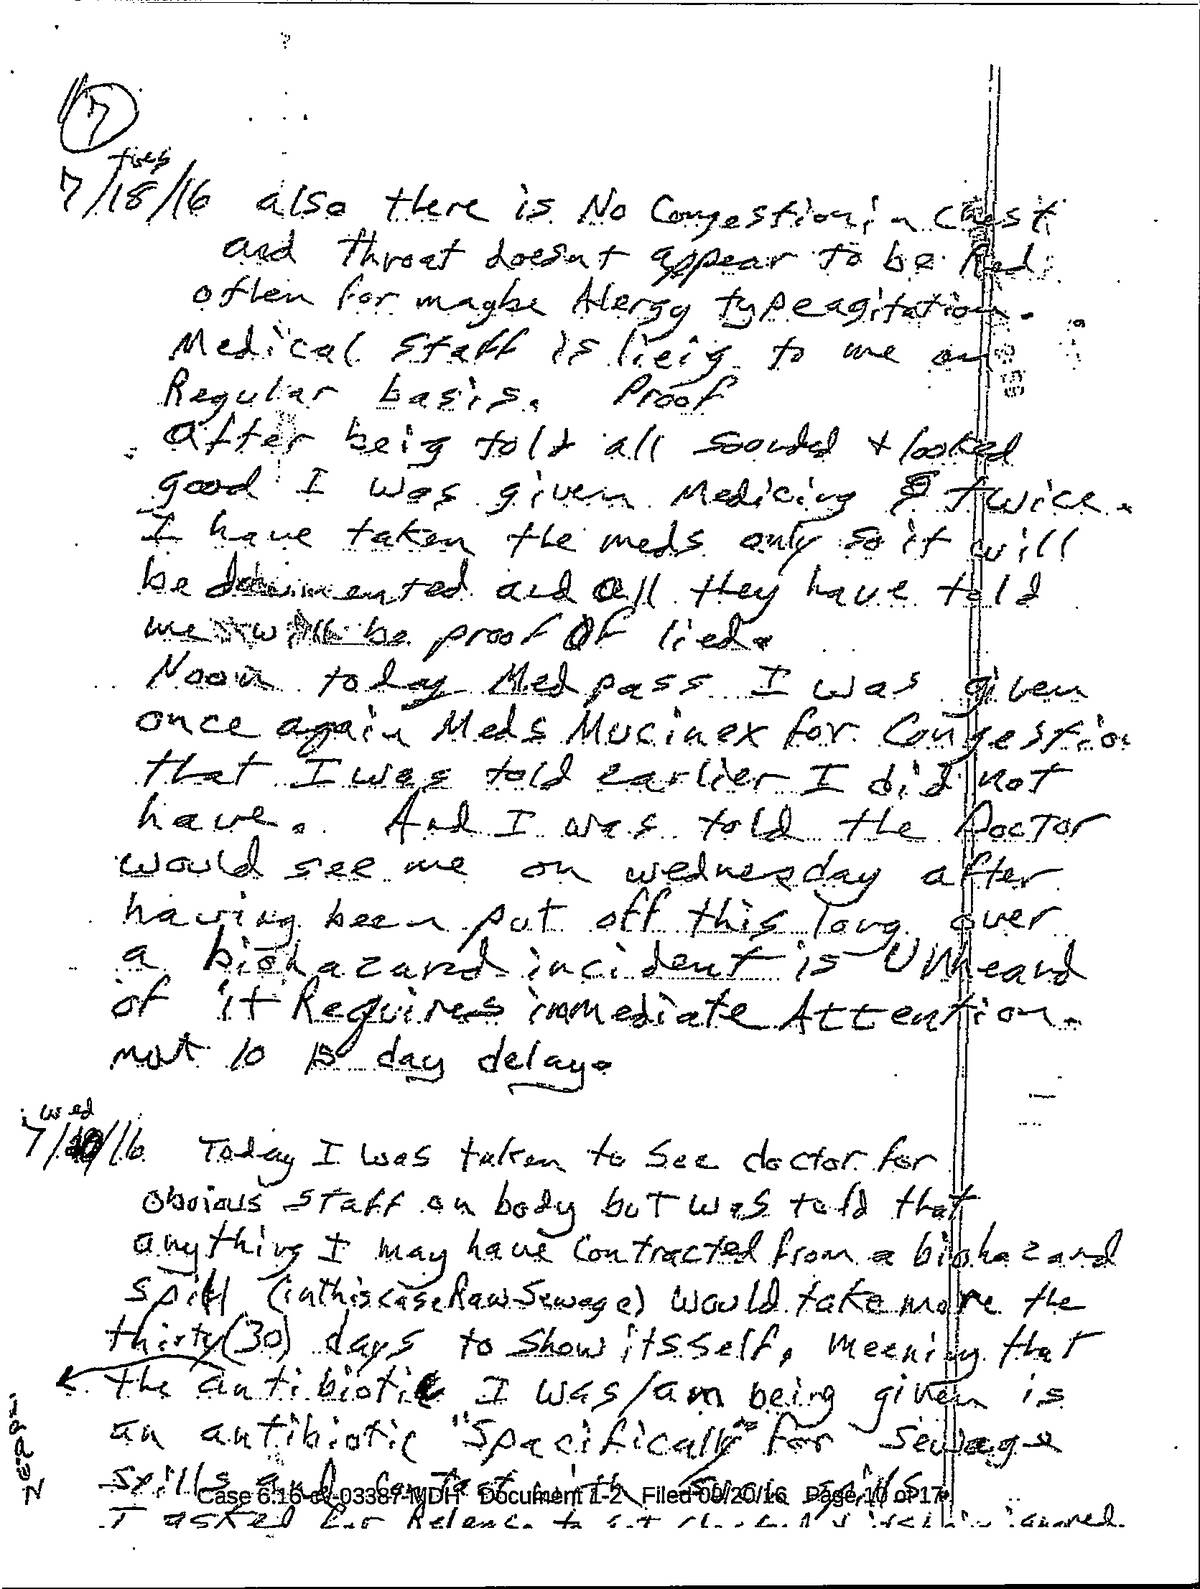 7
tues
7/18/16 also there is No Congestion in Chest
and throat doesnt appear to be Red
often for maybe Alergy type agitation.
Medical Staff is lieig to me on
Regular basis. Proof
After beig told all sound & looked
good I was given Medicing twice.
I have taken the meds only so it will
be documented and all they have told
me will be proof of lied.
Noon today Med pass I was given
once again Meds Mucinex for Congestion
that I was told earlier I did not
have. And I was told the Doctor
would see me on wednesday after
having been put off this long over
a biohazard incident is UNheard
of it Requires immediate Attention.
not 10 15 day delay.
wed
7/ /16 Today I was taken to See doctor for
obvious staff on body but was told that
anything I may have contracted from a biohazard
spill (in this case Raw Sewage) would take more the
thirty (30) days to show itsself, meening that
the antibiotic I was/am being given is
an antibiotic "Spacifically" for Sewage
spills and contact with such spills
Case 6:16-cv-03387-MDH Document 1-2 Filed 09/20/16 Page 10 of 17
I asked for